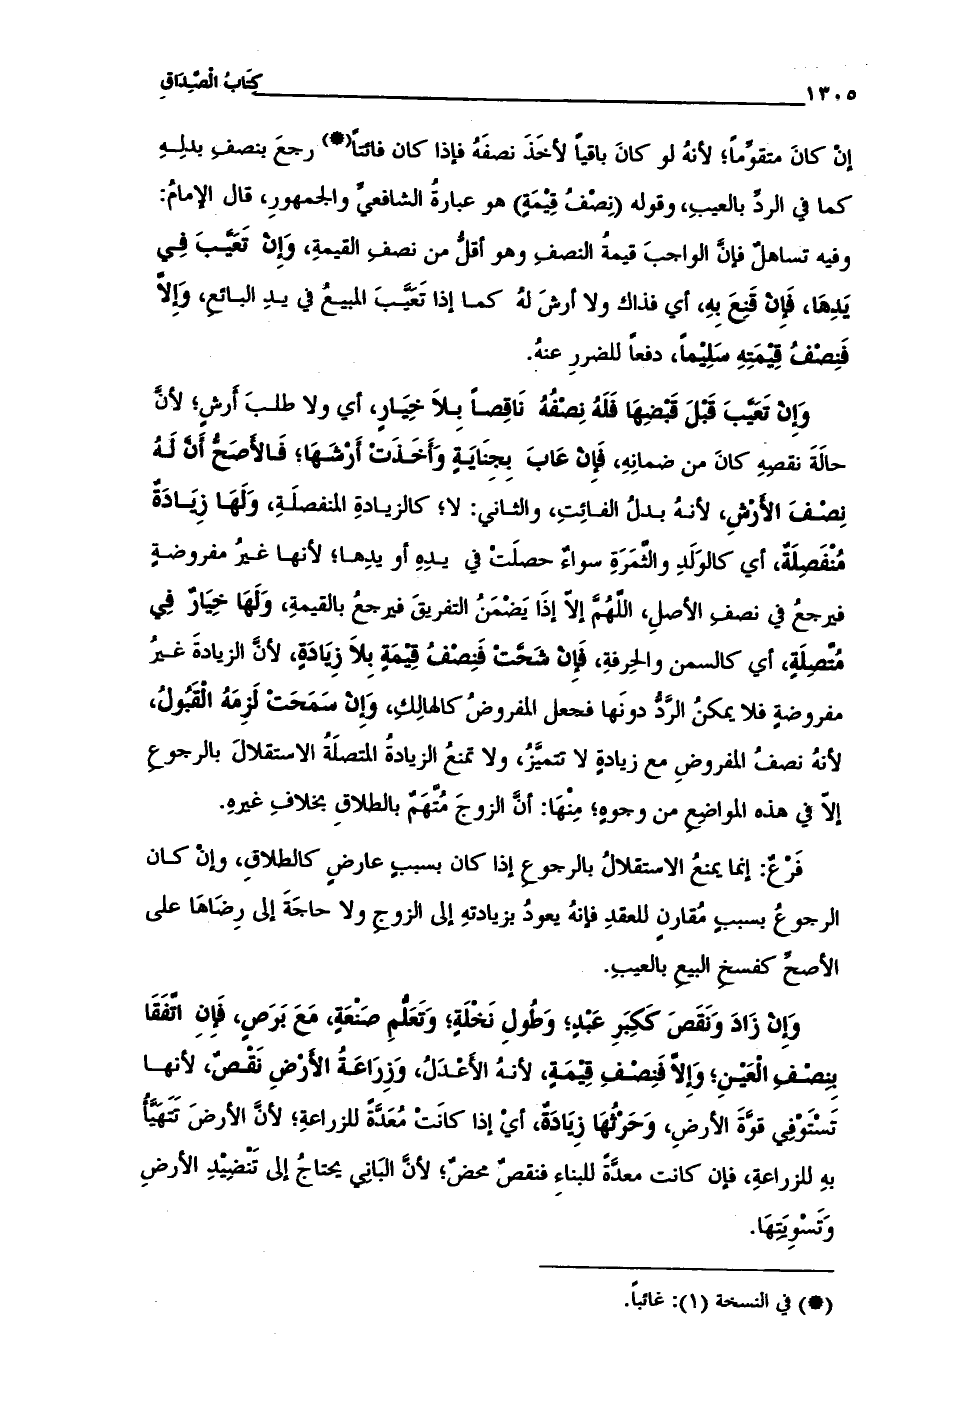 ١٣٠٥ كِتَابُ الْصِّدَاقِ
إنْ كانَ متقوِّماً؛ لأنهُ لو كانَ باقياً لأخَذَ نصفَهُ فإذا كان فائتاً(*) رجعَ بنصفِ بدلِـهِ
كما في الردِّ بالعيبِ، وقوله (نِصْفُ قِيْمَةٍ) هو عبارةُ الشافعيِّ والجمهورِ، قال الإمامُ:
وفيه تساهلٌ فإنَّ الواجبَ قيمةُ النصفِ وهو أقلُّ من نصفِ القيمةِ، وَإِنْ تَعَيَّبَ فِـي
يَدِهَا، فَإِنْ قَنِعَ بِهِ، أي فذاك ولا أرشَ لهُ كمـا إذا تَعَيَّـبَ المبيـعُ في يـدِ البـائعِ، وَإِلاَّ
فَنِصْفُ قِيْمَتِهِ سَلِيْماً، دفعاً للضررِ عنهُ.
وَإِنْ تَعَيَّبَ قَبْلَ قَبْضِهَا فَلَهُ نِصْفُهُ نَاقِصاً بِـلاَ خِيَـارٍ، أي ولا طلـبَ أرشٍ؛ لأنَّ
حالَةَ نقصِهِ كانَ من ضمانِهِ، فَإِنْ عَابَ بِجِنَايَـةٍ وَأَخَـذَتْ أَرْشَـهَا؛ فَـالأَصَحُّ أَنَّ لَـهُ
نِصْـفَ الأَرْشِ، لأنـهُ بـدلُ الفـائِتِ، والثـاني: لا؛ كالزيـادةِ المنفصلَـةِ، وَلَهَـا زِيَـادَةٌ
مُنْفَصِلَةٌ، أي كالوَلَدِ والثَّمَرَةِ سواءٌ حصلَتْ في يـدِهِ أو يدِهـا؛ لأنهـا غـيرُ مفروضـةٍ
فيرجعُ في نصفِ الأصلِ، اللَّهُمَّ إلاَّ إذَا يَضْمَنُ التفريقَ فيرجعُ بالقيمةِ، وَلَهَا خِيَارٌ فِي
مُتَّصِلَةٍ، أي كالسمن والحِرفةِ، فَإِنْ شَحَّتْ فَنِصْفُ قِيْمَةٍ بِلاَ زِيَادَةٍ، لأنَّ الزيادةَ غـيرُ
مفروضةٍ فلا يمكنُ الرَّدُّ دونَها فجعل المفروضُ كالهالِكِ، وَإِنْ سَمَحَتْ لَزِمَهُ الْقَبُولُ،
لأنهُ نصفُ المفروضِ مع زيادةٍ لا تتميَّزُ، ولا تمنعُ الزيادةُ المتصلَةُ الاستقلالَ بالرجوعِ
إلاَّ في هذه المواضِعِ من وجوهٍ؛ مِنْهَا: أنَّ الزوجَ مُتَّهَمٌ بالطلاقِ بخلافِ غيرِهِ.
فَرْعٌ: إنما يمنعُ الاستقلالُ بالرجوعِ إذا كان بسببٍ عارضٍ كالطلاقِ، وإنْ كـان
الرجوعُ بسببٍ مُقارنٍ للعقدِ فإنهُ يعودُ بزيادتهِ إلى الزوجِ ولا حاجَةَ إلى رِضَاهَا على
الأصحِّ كفسخِ البيعِ بالعيبِ.
وَإِنْ زَادَ وَنَقَصَ كَكِبَرِ عَبْدٍ؛ وَطُولِ نَخْلَةٍ؛ وَتَعَلُّمِ صَنْعَةٍ، مَعَ بَرَصٍ، فَإِنِ اتَّفَقَا
بِنِصْـفِ الْعَيْـنِ؛ وَإِلاَّ فَنِصْـفُ قِيْمَـةٍ، لأنـهُ الأَعْـدَلُ، وَزِرَاعَـةُ الأَرْضِ نَقْـصٌ، لأنهـا
تَسْتَوْفِي قوَّةَ الأرضِ، وَحَرْثُهَا زِيَادَةٌ، أيْ إذا كانَتْ مُعَدَّةً للزراعةِ؛ لأنَّ الأرضَ تَتَهَيَّأُ
بهِ للزراعةِ، فإن كانت معدَّةً للبناءِ فنقصٌ محضٌ؛ لأنَّ البَانِي يحتاجُ إلى تَنْضِيْدِ الأرضِ
وَتَسْوِيَتِهَا.
(*) في النسخة (١): غائباً.